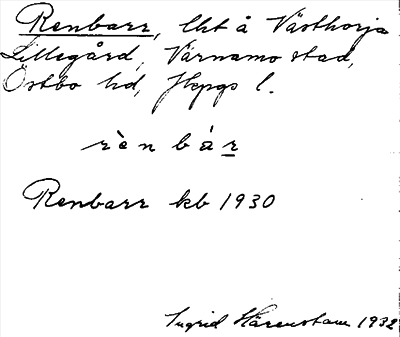 Renbarr, lht å Västhorja
Lillegård, Värnamo stad,
Östbo hd, Jkpgs l.
rènbár
Renbarr kb 1930
Ingrid Härenstam 1932